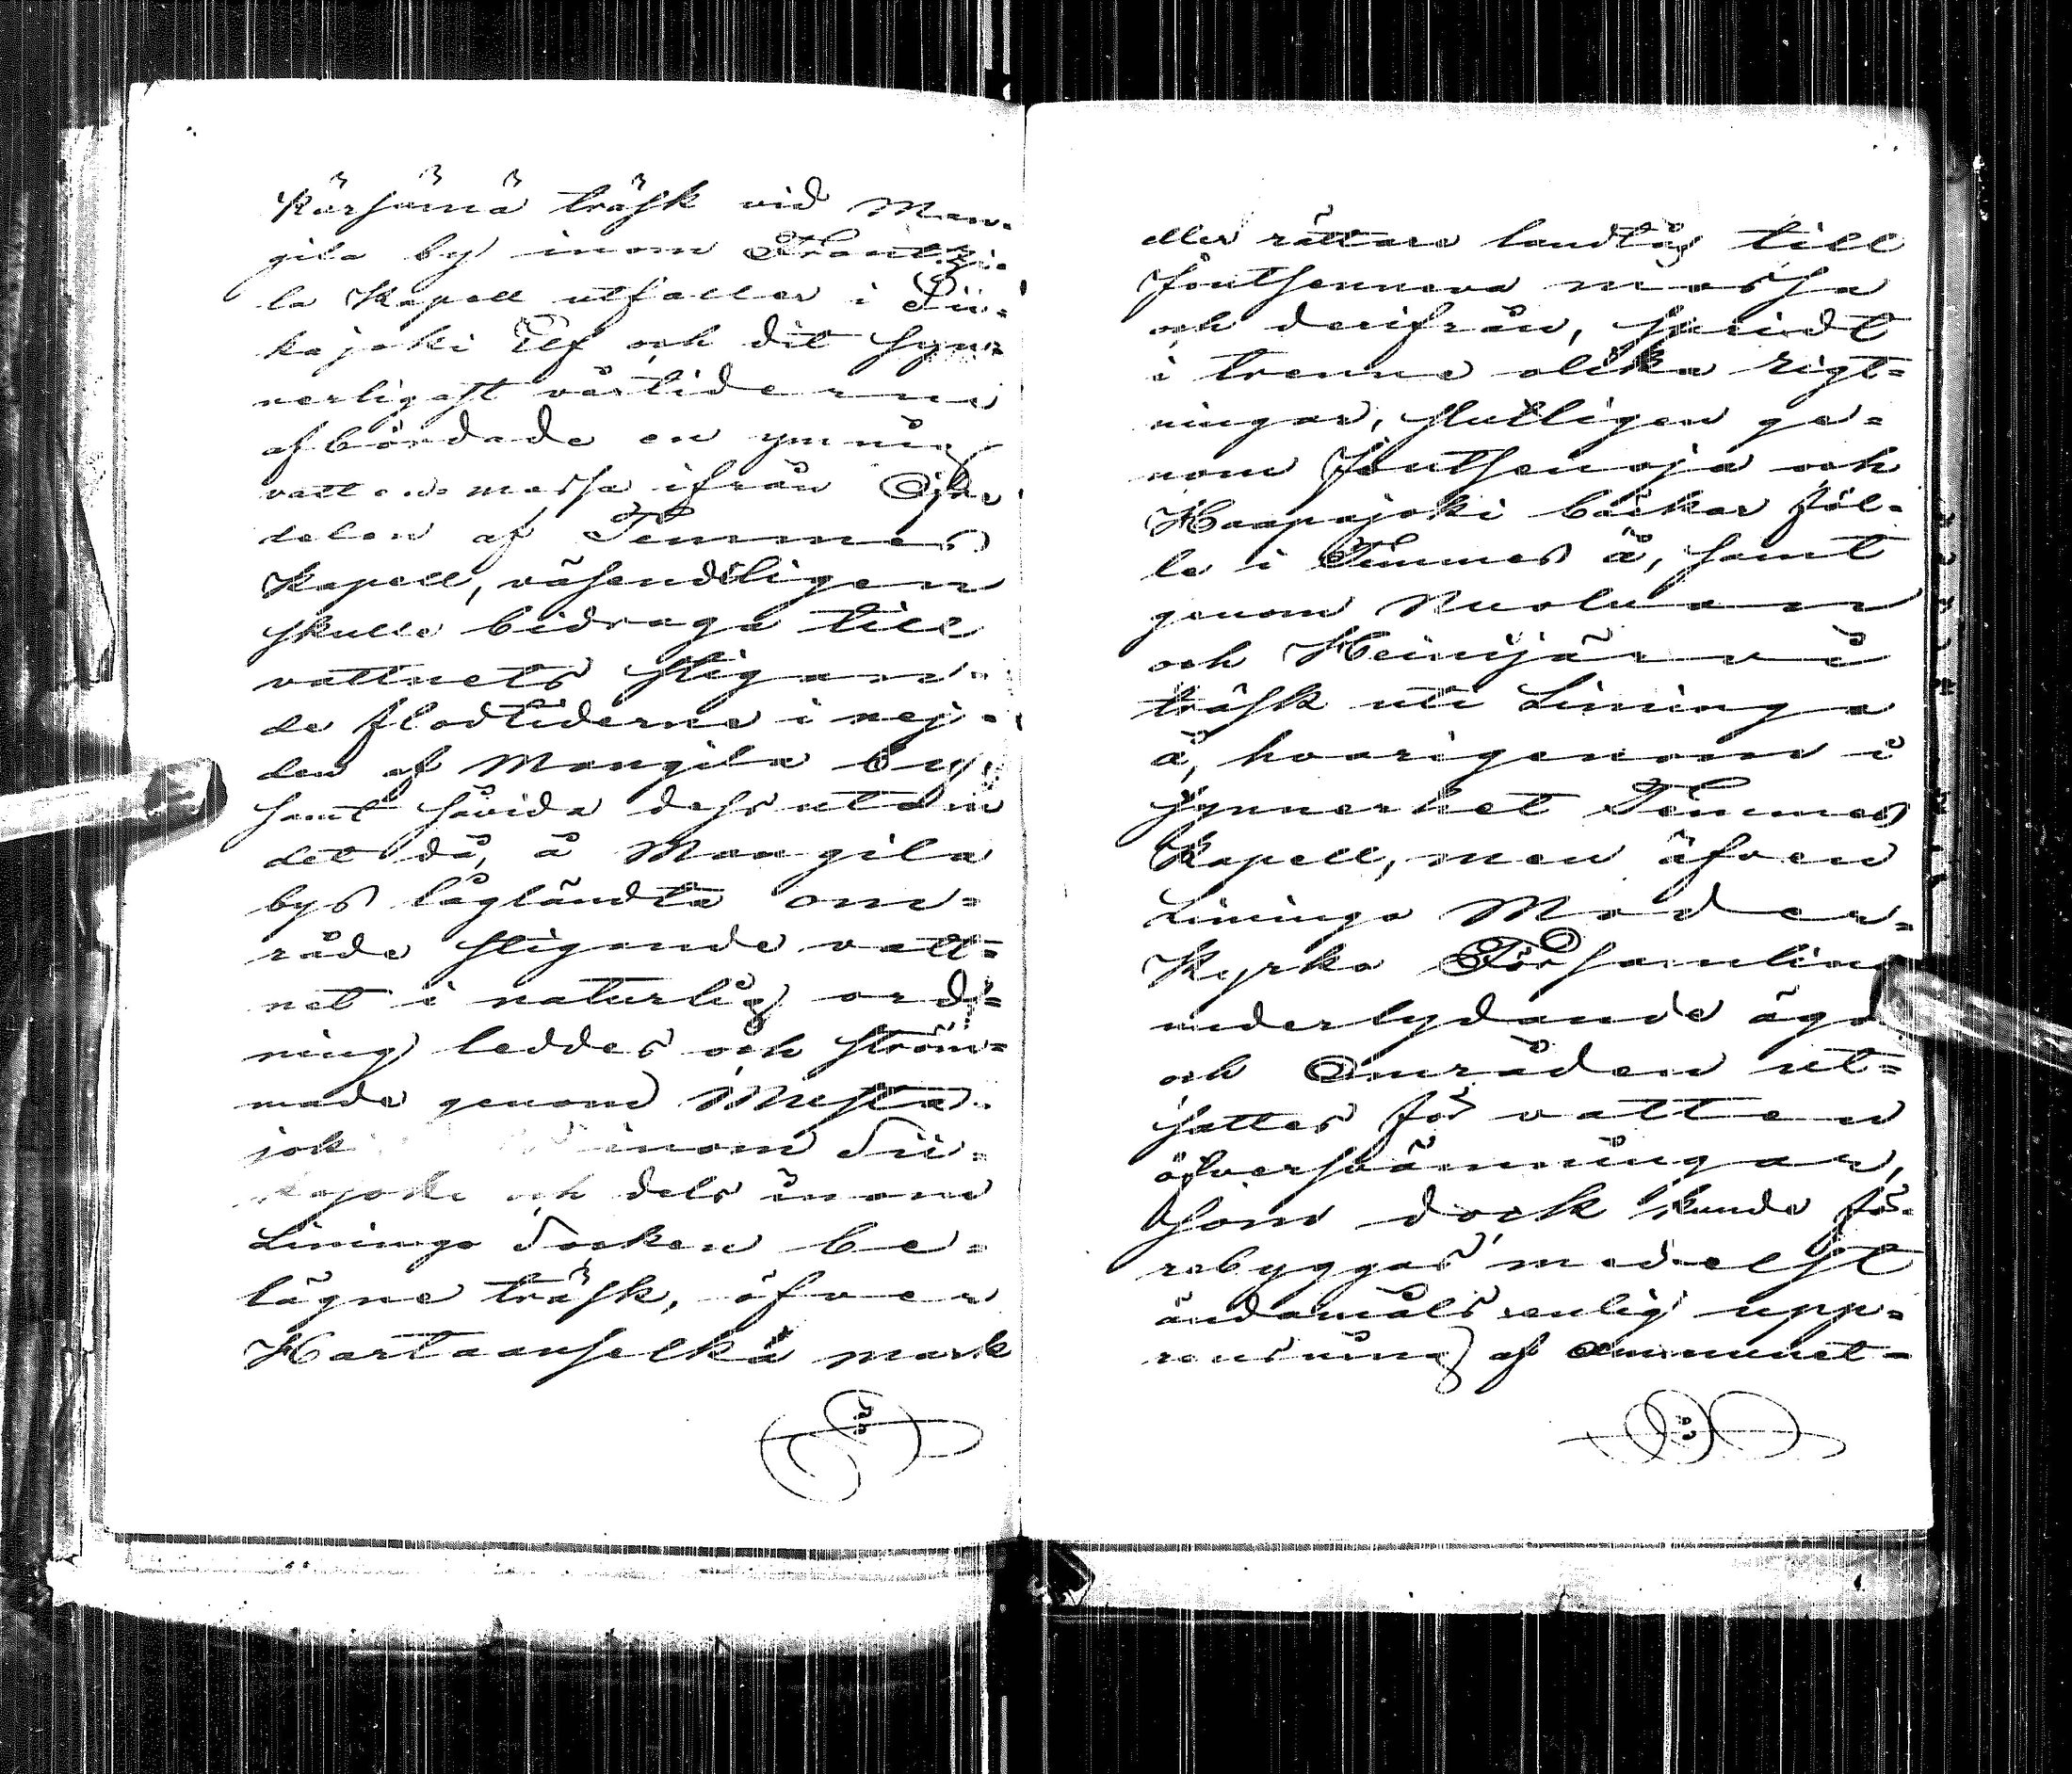 Kärsämä träsk vid Man-
gila by inom Frantzi-
la Kapell utfaller i Sii-
kajoki Elf och dit syn-
nerligast vårtiderne
afbördade en ymnig
vattenmassa ifrån
delen af Temmes
Kapell, väsendtligen
skulle bidraga till
vattnets stigan-
de flodtiderne i nej-
den af Mangila by,
samt såvida dessutom
det då, å Mangila
bys lågländta om-
råde stigande vatt-
net i naturlig ord-
ning leddes och ström-
made genom Musta-
joki inom Sii-
kajoki och dels inom
Limingo Socken be-
lägne träsk, öfver
Hartaanselkä mark
eller rättare landtåg till
Joutsenneva mossa
och derifrån, spridt
i trenne olika rigt-
ningar, slutligen ge-
nom Joutsenoja och
Haapajoki bäckar föl-
le i Temmes å, samt
genom Nuoluan
och Heinijärvi
träsk uti Limingo
å, hvarigenom i
synnerhet Temmes
Kapell, men äfven
Limingo Moder-
Kyrko Församling
underlydande ägor
och Områden ut-
sattes för vatten
öfversvämningar,
som dock kunde fö-
rebyggas medelst
ändamålsenlig upp-
rensning af